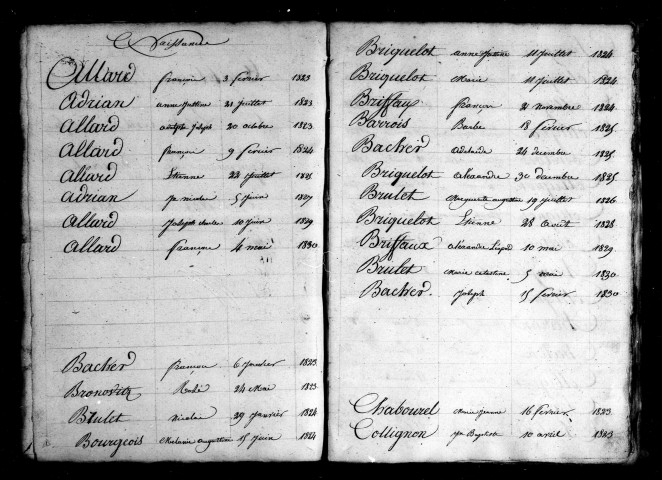 Naissances
Allard françois 3 fevrier 1823
Adrian anne justine 21 juillet 1823
Allard adolphe Joseph 20 octobre 1823
Allard françois 9 fevrier 1824
Allard Etienne 22 juillet 1825
Adrian jn nicolas 5 juin 1827
Allard Joseph charles 10 juin 1829
Allard françoise 4 mai 1830
Bacher 6 janvier 1823
Bronovitz 24 Mai 1823
Brulet nicolas 29 janvier 1824
Bourgeois Melanie augustine 15 juin 1824
Briquelot anne justine 11 juillet 1824
Briquelot Marie 11 juillet 1824
Briffaux françois 21 novembre 1824
Barrois Barbe 18 fevrier 1825
Bacher adelaide 24 decembre 1825
Briquelot alexandre 30 decembre 1825
Brulet Marguerite augustine 19 juillet 1826
Briquelot Etienne 28 Août 1828
Briffaux alexandre 10 mai 1829
Brulet Marie celestine 5 mai 1830
Bacher Joseph 15 fevrier 1830
Chabourel Marie jeanne 16 fevrier 1823
Collignon jn Baptiste 10 avril 1823